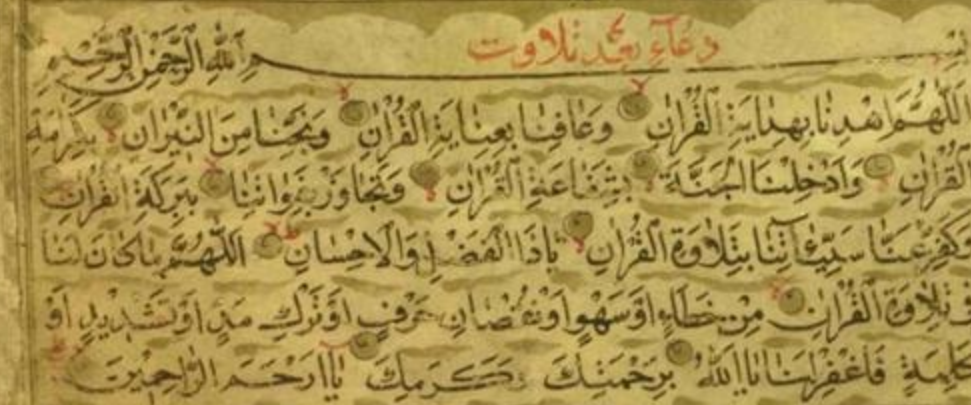 دعاء بعد تلاوت
بسم الله الرحمن الرحيم
اللهم اهدنا بهداية القرآن وعافنا بعناية القرآن ونجنا من النيران بكرامة
القرآن وادخلنا الجنة بشفاعة القرآن وتجاوز هفواتنا ببركة القرآن
وكفر عنا سيئاتنا بتلاوة القرآن ياذا الفضل والاحسان اللهم ما كان لنا
في تلاوة القرآن من خطاء او سهو او نقصان حرف او ترك مد او تشديد او
كلمة فاغفر لنا يا الله برحمتك كرمك يا ارحم الراحمين